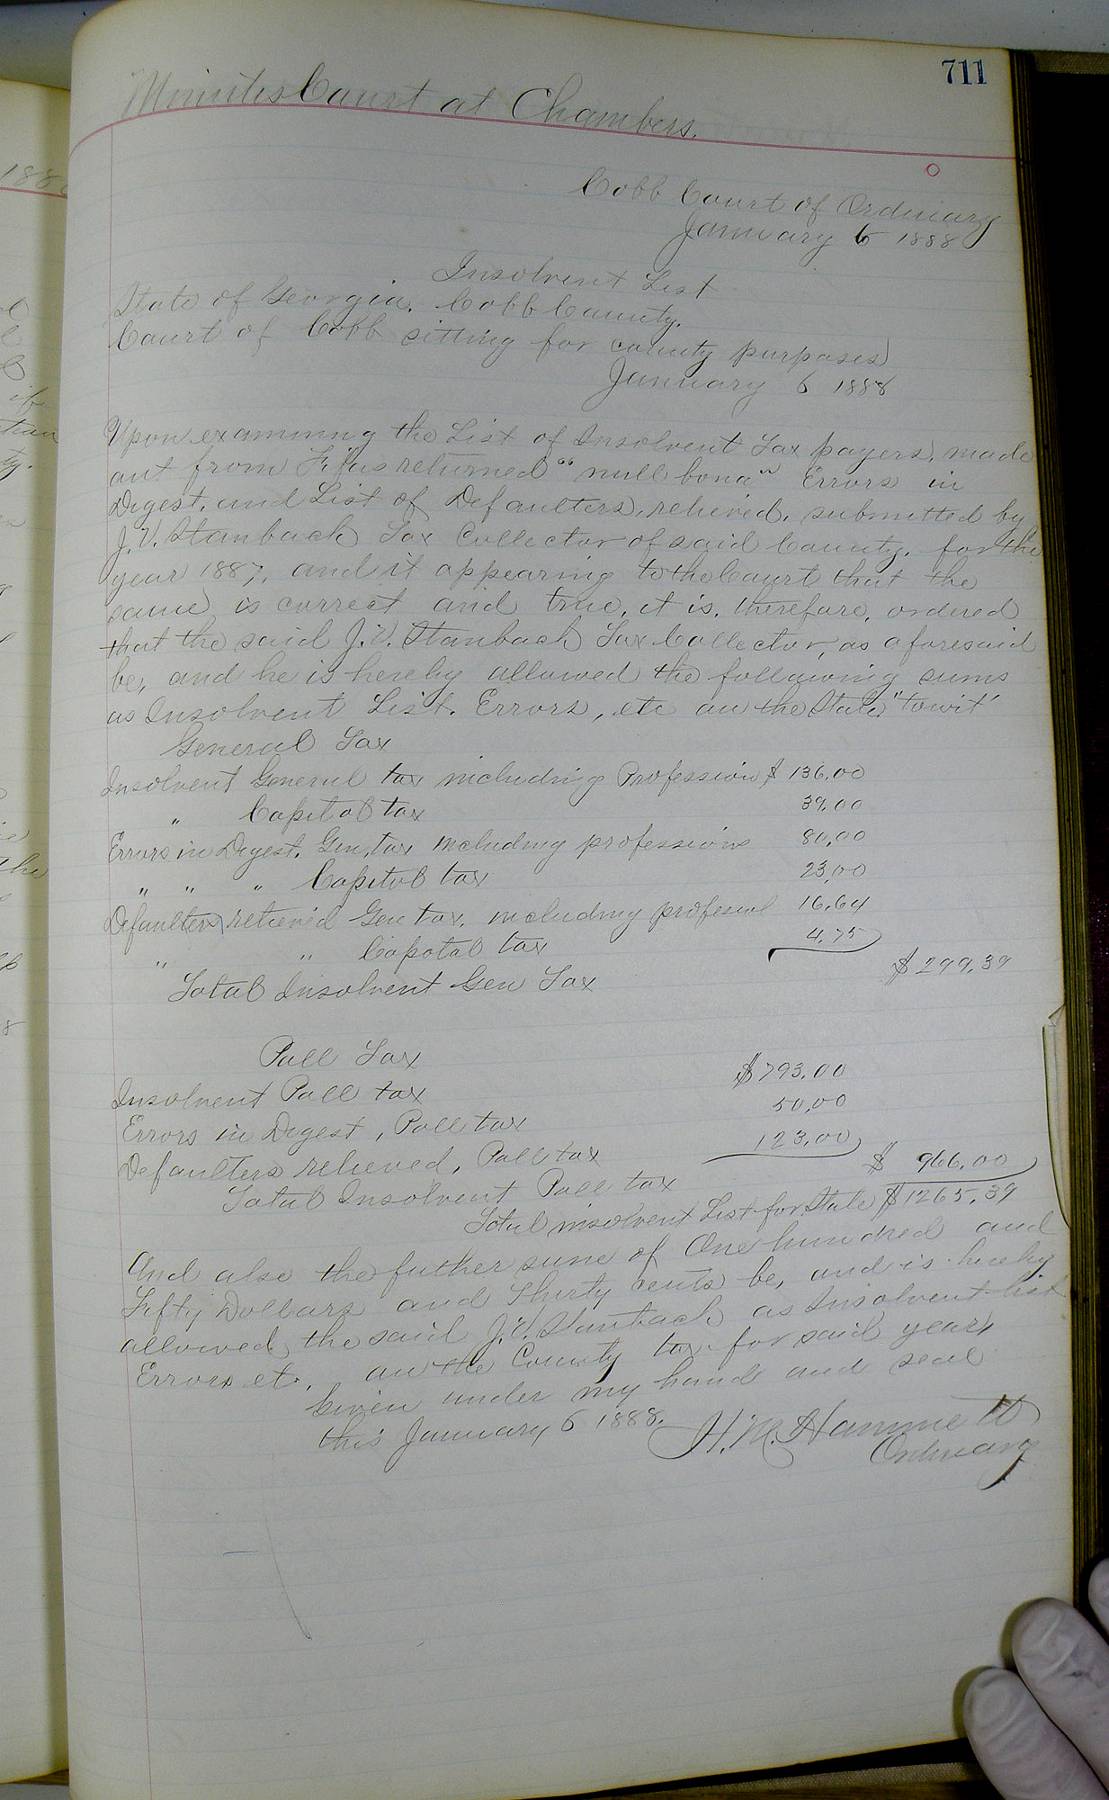 711
Minutes Court at Chambers.
Cobb Court of Ordinary
January 6 1888
Insolvent List
State of Georgia. Cobb County.
Court of Cobb sitting for county purposes
January 6 1888
Upon examining the List of Insolvent Tax payers, made
out from Fifas returned "null bona" Errors in
Digest, and List of Defaulters, relieved, submitted by
J.V. Stanback Tax Collector of said County, for the
year 1887, and it appearing to the Court that the
same is correct and true, it is, therefore, ordered
that the said J.V. Stanback Tax Collector, as aforesaid
be, and he is hereby allowed the following sums
as Insolvent List, Errors, etc on the State, "towit"
General Tax
Insolvent General tax including Profession $ 136.00
" Capitol tax 39.00
Errors in Digest, Gen, tax including professions 80.00
" " " Capitol tax 23.00
Defaulters relieved Gen tax, including profesial 16.64
" " Capotal tax 4.75
Total Insolvent Gen Tax $299.39
Poll Tax
Insolvent Poll tax $793.00
Errors in Digest, Poll tax 50.00
Defaulters relieved, Poll tax 123.00
Total Insolvent Poll tax $ 966.00
Total insolvent List for State $1265.39
And also the futher sum of One hundred and
Fifty Dollars and Thirty cents be, and is hereby
allowed, the said J.V. Stanback as Insolvent list
Errors etc. on the County tax for said year,
Given under my hand and seal
this January 6 1888.
H.M. Hammett
Ordinary
188